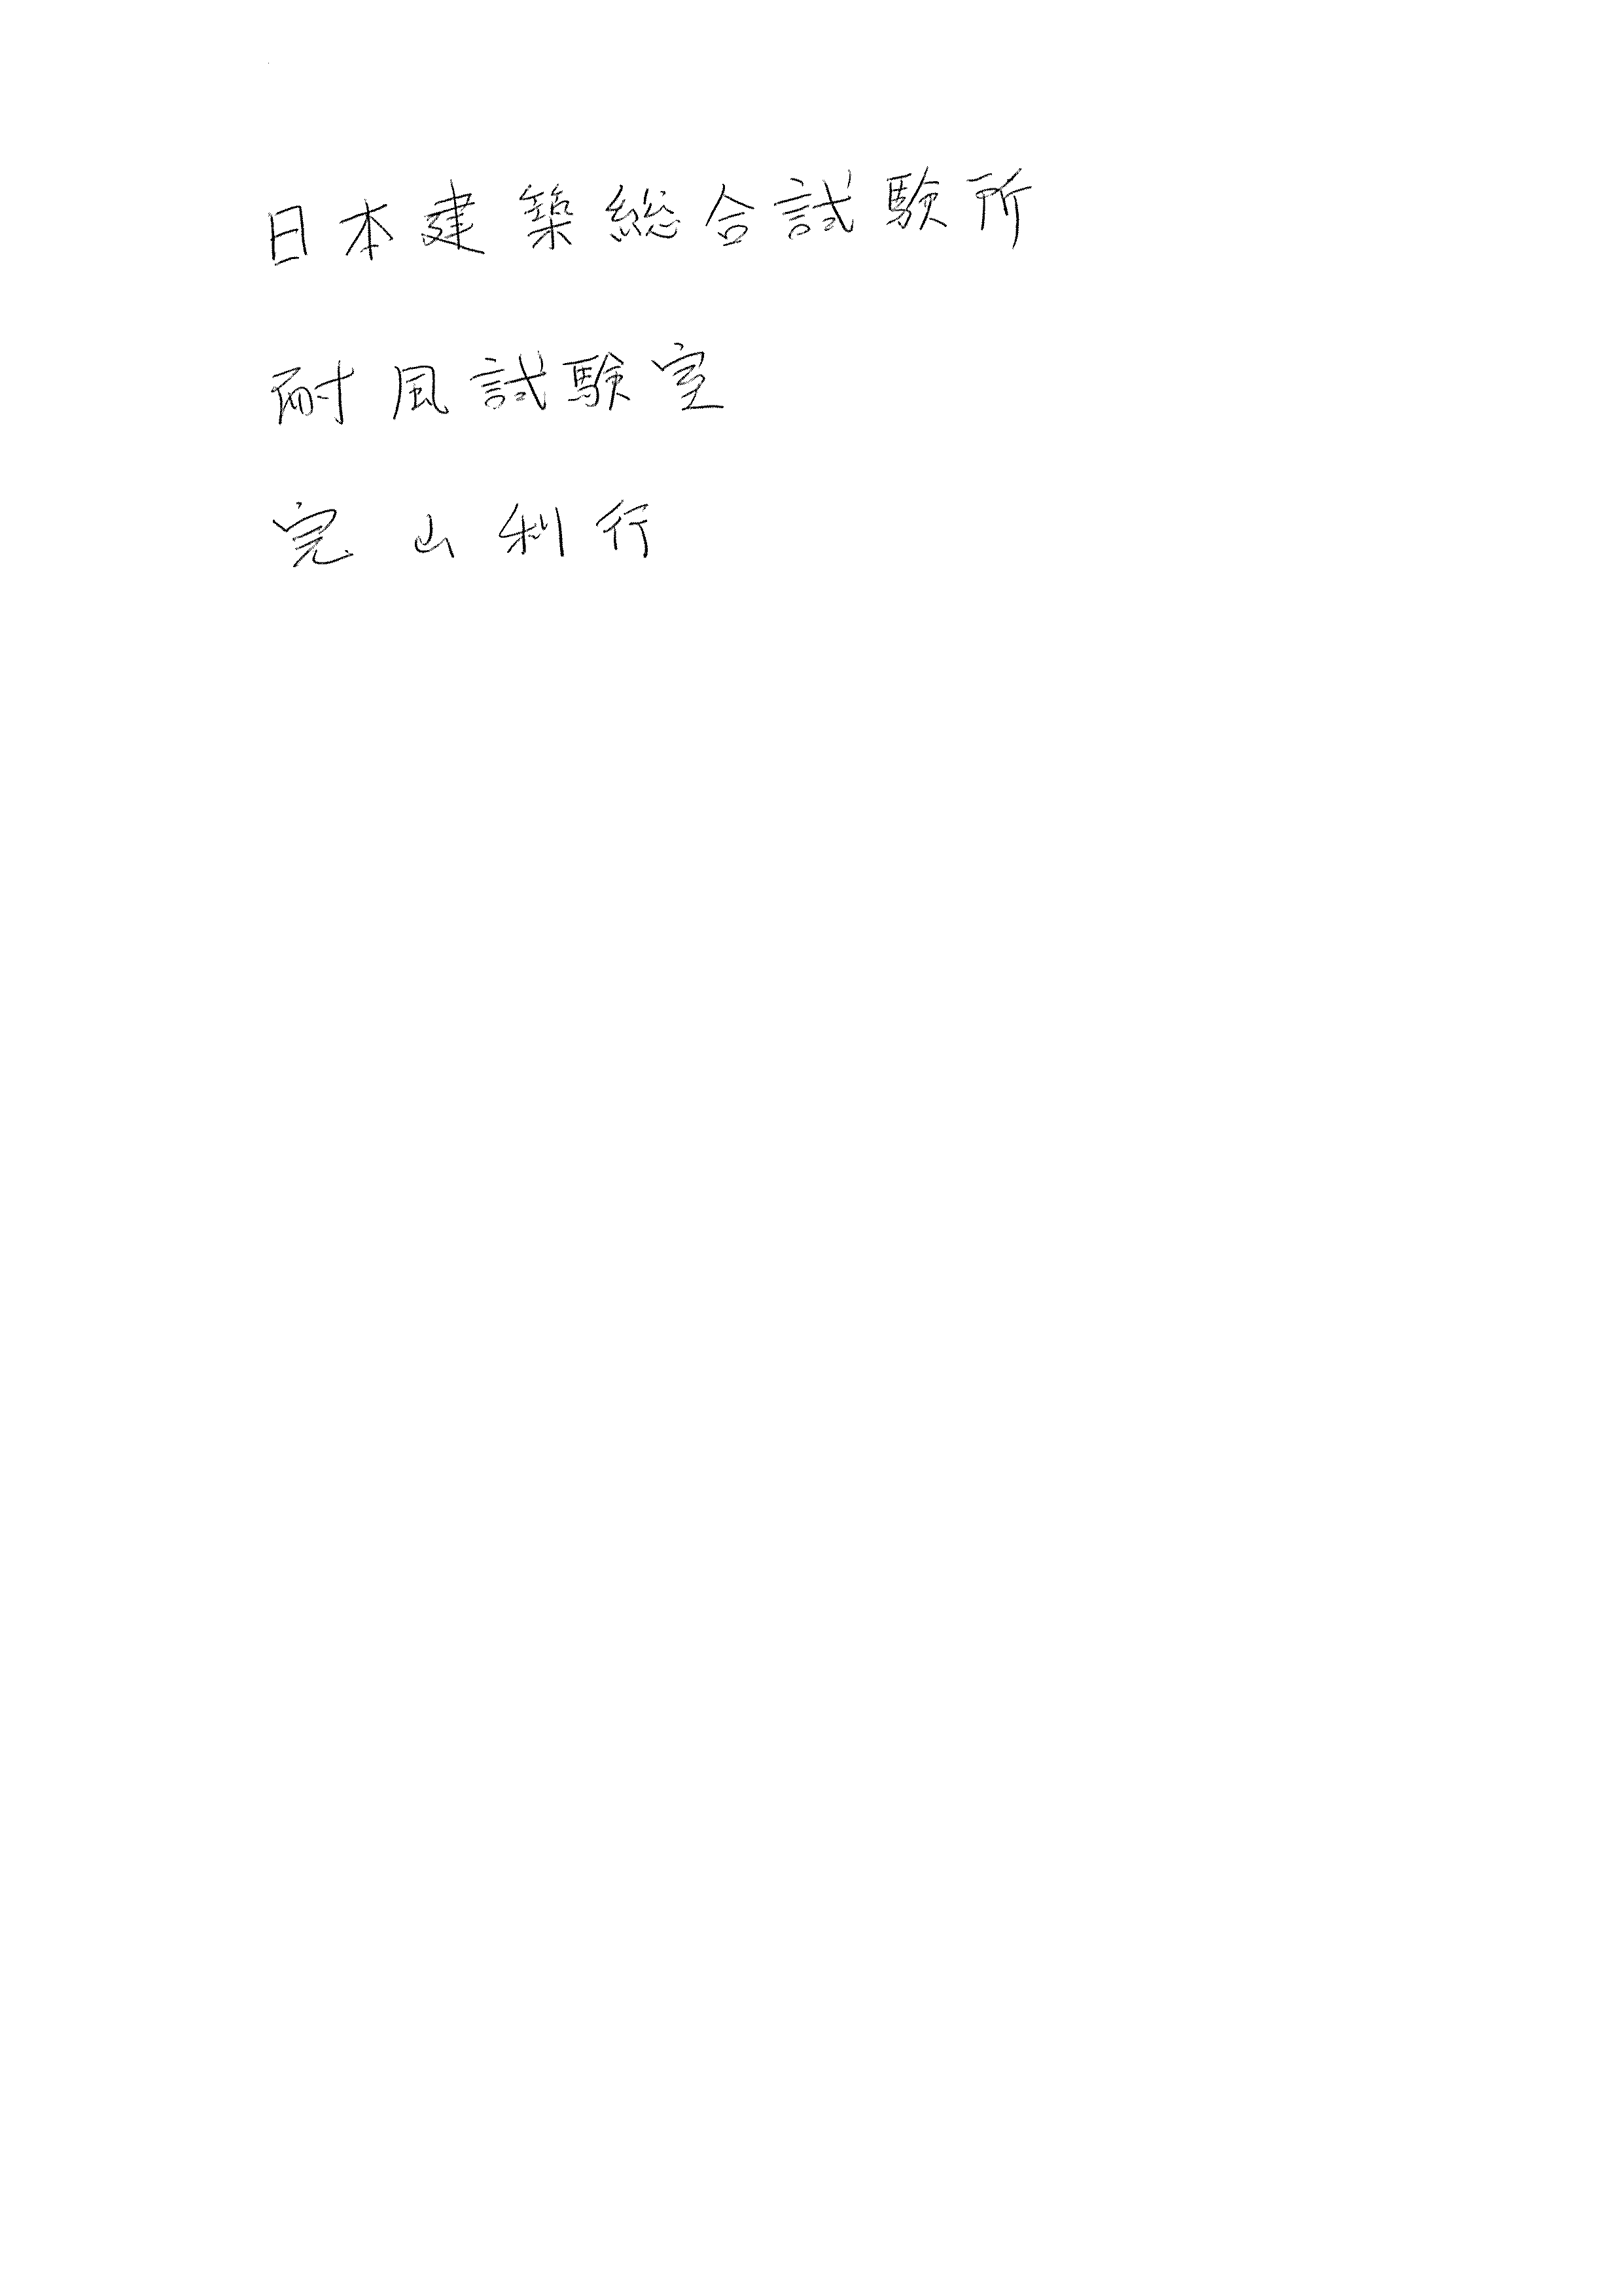 日本建築総合試験所
耐風試験室
完山利行